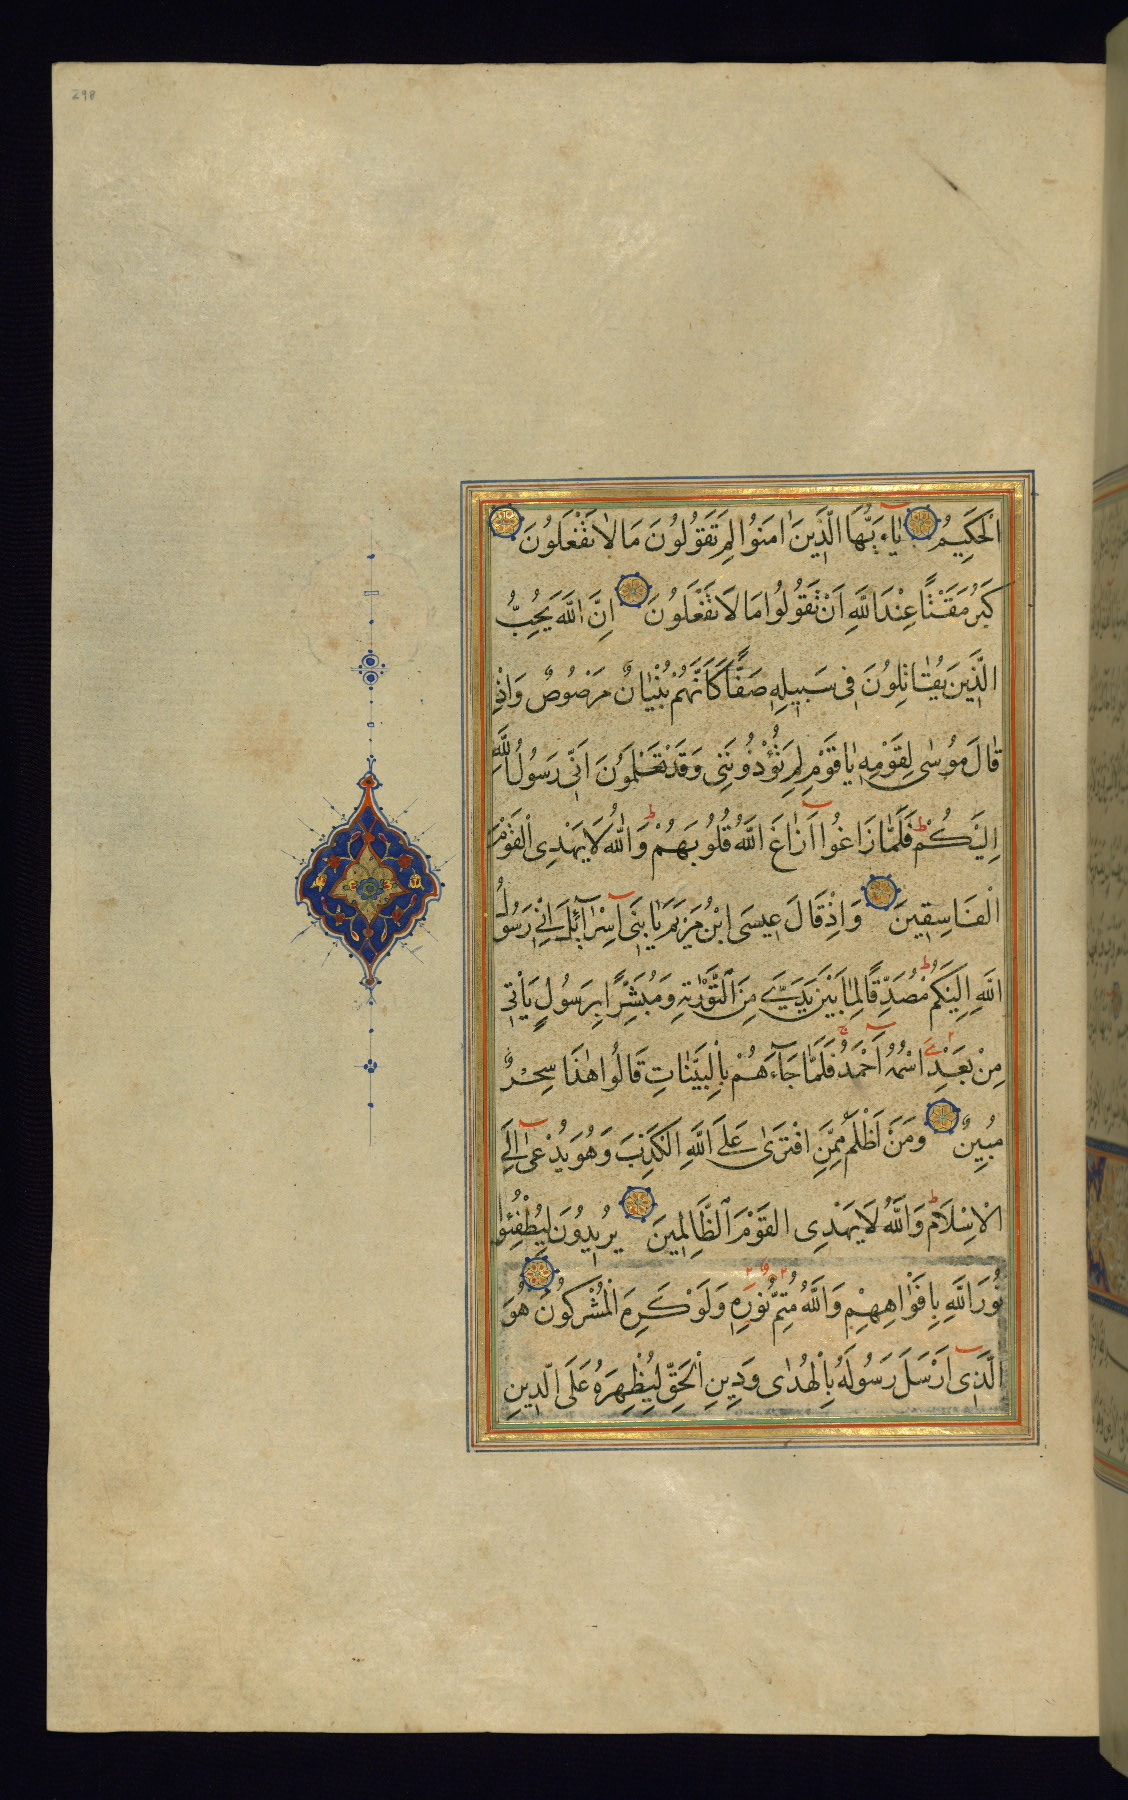 298
الْحَكِيمُ يٰاءَيُّهَا الَّذِينَ اٰمَنُوا لِمَ تَقُولُونَ مَا لَا تَفْعَلُونَ
كَبُرَ مَقْتًا عِنْدَ اللّٰهِ اَنْ تَقُولُوا مَا لَا تَفْعَلُونَ اِنَّ اللّٰهَ يُحِبُّ
الَّذِينَ يُقَاتِلُونَ فِى سَبِيلِهِ صَفًّا كَاَنَّهُمْ بُنْيَانٌ مَرْصُوصٌ وَاِذْ
قَالَ مُوسٰى لِقَوْمِهِ يَاقَوْمِ لِمَ تُؤْذُونَنِى وَقَدْ تَعْلَمُونَ اَنِّى رَسُولُ اللّٰهِ
اِلَيْكُمْ فَلَمَّا زَاغُوا اَزَاغَ اللّٰهُ قُلُوبَهُمْ وَاللّٰهُ لَا يَهْدِى الْقَوْمَ
الْفَاسِقِينَ وَاِذْ قَالَ عِيسَى ابْنُ مَرْيَمَ يَابَنِى اِسْرَآئِلَ اِنِّى رَسُولُ
اللّٰهِ اِلَيْكُمْ مُصَدِّقًا لِمَا بَيْنَ يَدَيَّ مِنَ التَّوْرٰيةِ وَمُبَشِّرًا بِرَسُولٍ يَاْتِى
مِنْ بَعْدِى اسْمُهُ اَحْمَدُ فَلَمَّا جَآءَهُمْ بِالْبَيِّنَاتِ قَالُوا هٰذَا سِحْرٌ
مُبِينٌ وَمَنْ اَظْلَمُ مِمَّنِ افْتَرٰى عَلَى اللّٰهِ الْكَذِبَ وَهُوَ يُدْعٰى اِلَى
الْاِسْلَامِ وَاللّٰهُ لَا يَهْدِى الْقَوْمَ الظَّالِمِينَ يُرِيدُونَ لِيُطْفِئُوا
نُورَ اللّٰهِ بِاَفْوَاهِهِمْ وَاللّٰهُ مُتِمُّ نُورِهِ وَلَوْ كَرِهَ الْمُشْرِكُونَ هُوَ
الَّذِى اَرْسَلَ رَسُولَهُ بِالْهُدٰى وَدِينِ الْحَقِّ لِيُظْهِرَهُ عَلَى الدِّينِ